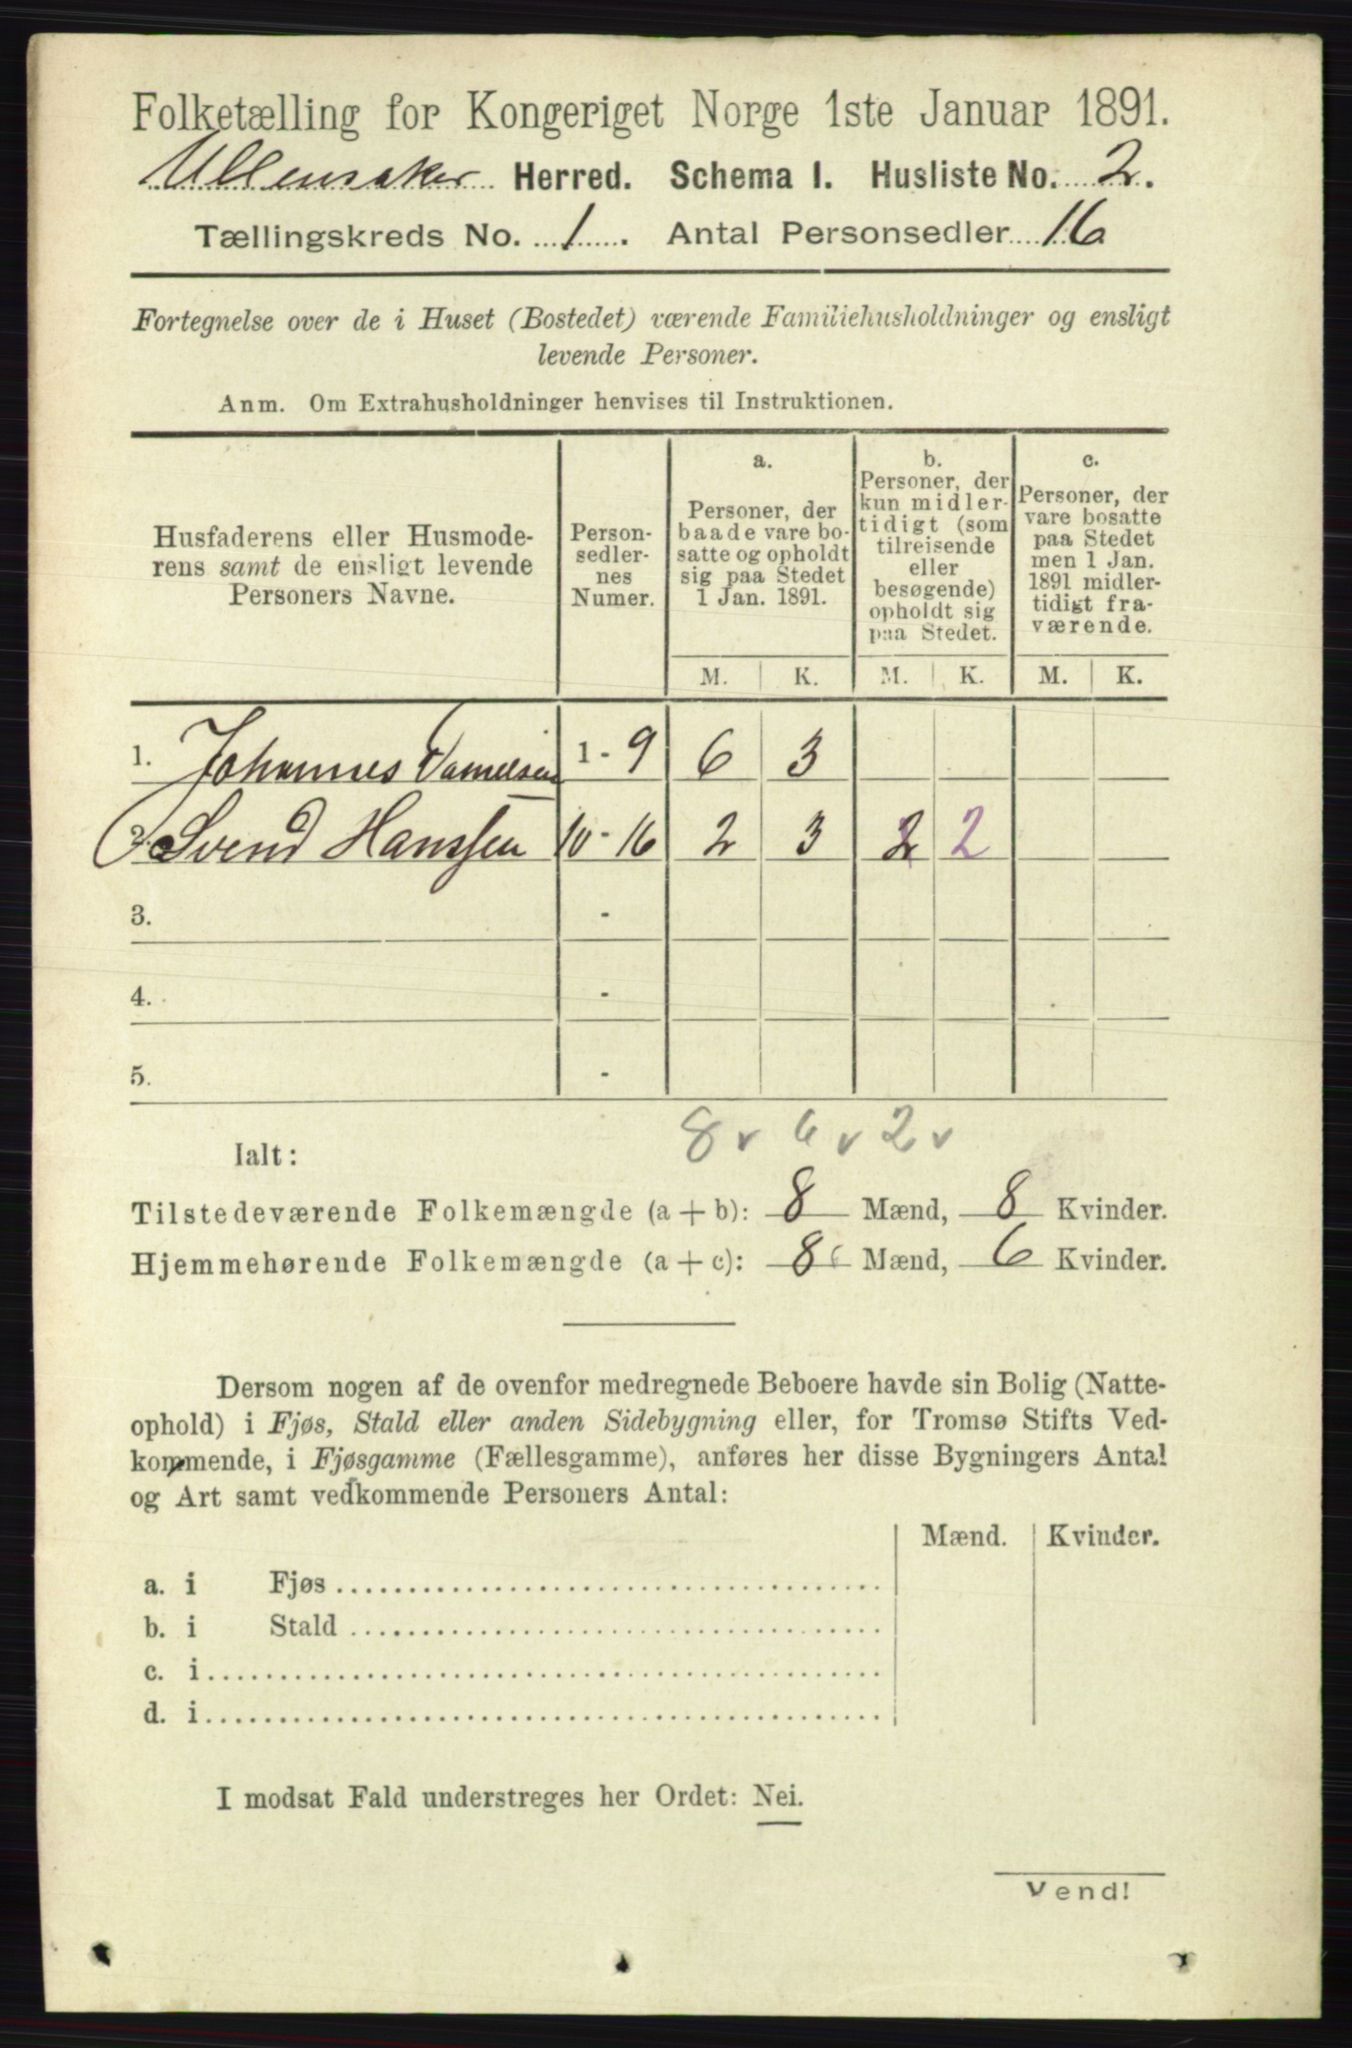 Folketælling for Kongeriget Norge 1ste Januar 1891.
Ullensaker Herred. Schema I. Husliste No. 2.
Tællingskreds No. 1. Antal Personsedler 16
Fortegnelse over de i Huset (Bostedet) værende Familiehusholdninger og ensligt
levende Personer.
Anm. Om Extrahusholdninger henvises til Instruktionen.
Husfaderens eller Husmode-
rens samt de ensligt levende
Personers Navne.
Person-
sedler-
nes
Numer.
a.
Personer, der
baade vare bo-
satte og opholdt
sig paa Stedet
1 Jan. 1891.
b.
Personer, der
kun midler-
tidigt (som
tilreisende
eller
besøgende)
opholdt sig
paa Stedet.
c.
Personer, der
vare bosatte
paa Stedet
men 1 Jan.
1891 midler-
tidigt fra-
værende.
M. K. M. K. M. K.
1. Johannes Danielsen 1 - 9 6 3
2. Svend Hanssen 10 - 16 2 3 2 2
3. -
4. -
5. -
8 v 6 v 2 v
Ialt:
Tilstedeværende Folkemængde (a + b): 8 Mænd, 8 Kvinder.
Hjemmehørende Folkemængde (a + c): 8 Mænd, 6 Kvinder.
Dersom nogen af de ovenfor medregnede Beboere havde sin Bolig (Natte-
ophold) i Fjøs, Stald eller anden Sidebygning eller, for Tromsø Stifts Ved-
kommende, i Fjøsgamme (Fællesgamme), anføres her disse Bygningers Antal
og Art samt vedkommende Personers Antal:
Mænd. Kvinder.
a. i Fjøs
b. i Stald
c. i
d. i
I modsat Fald understreges her Ordet: Nei.
Vend!